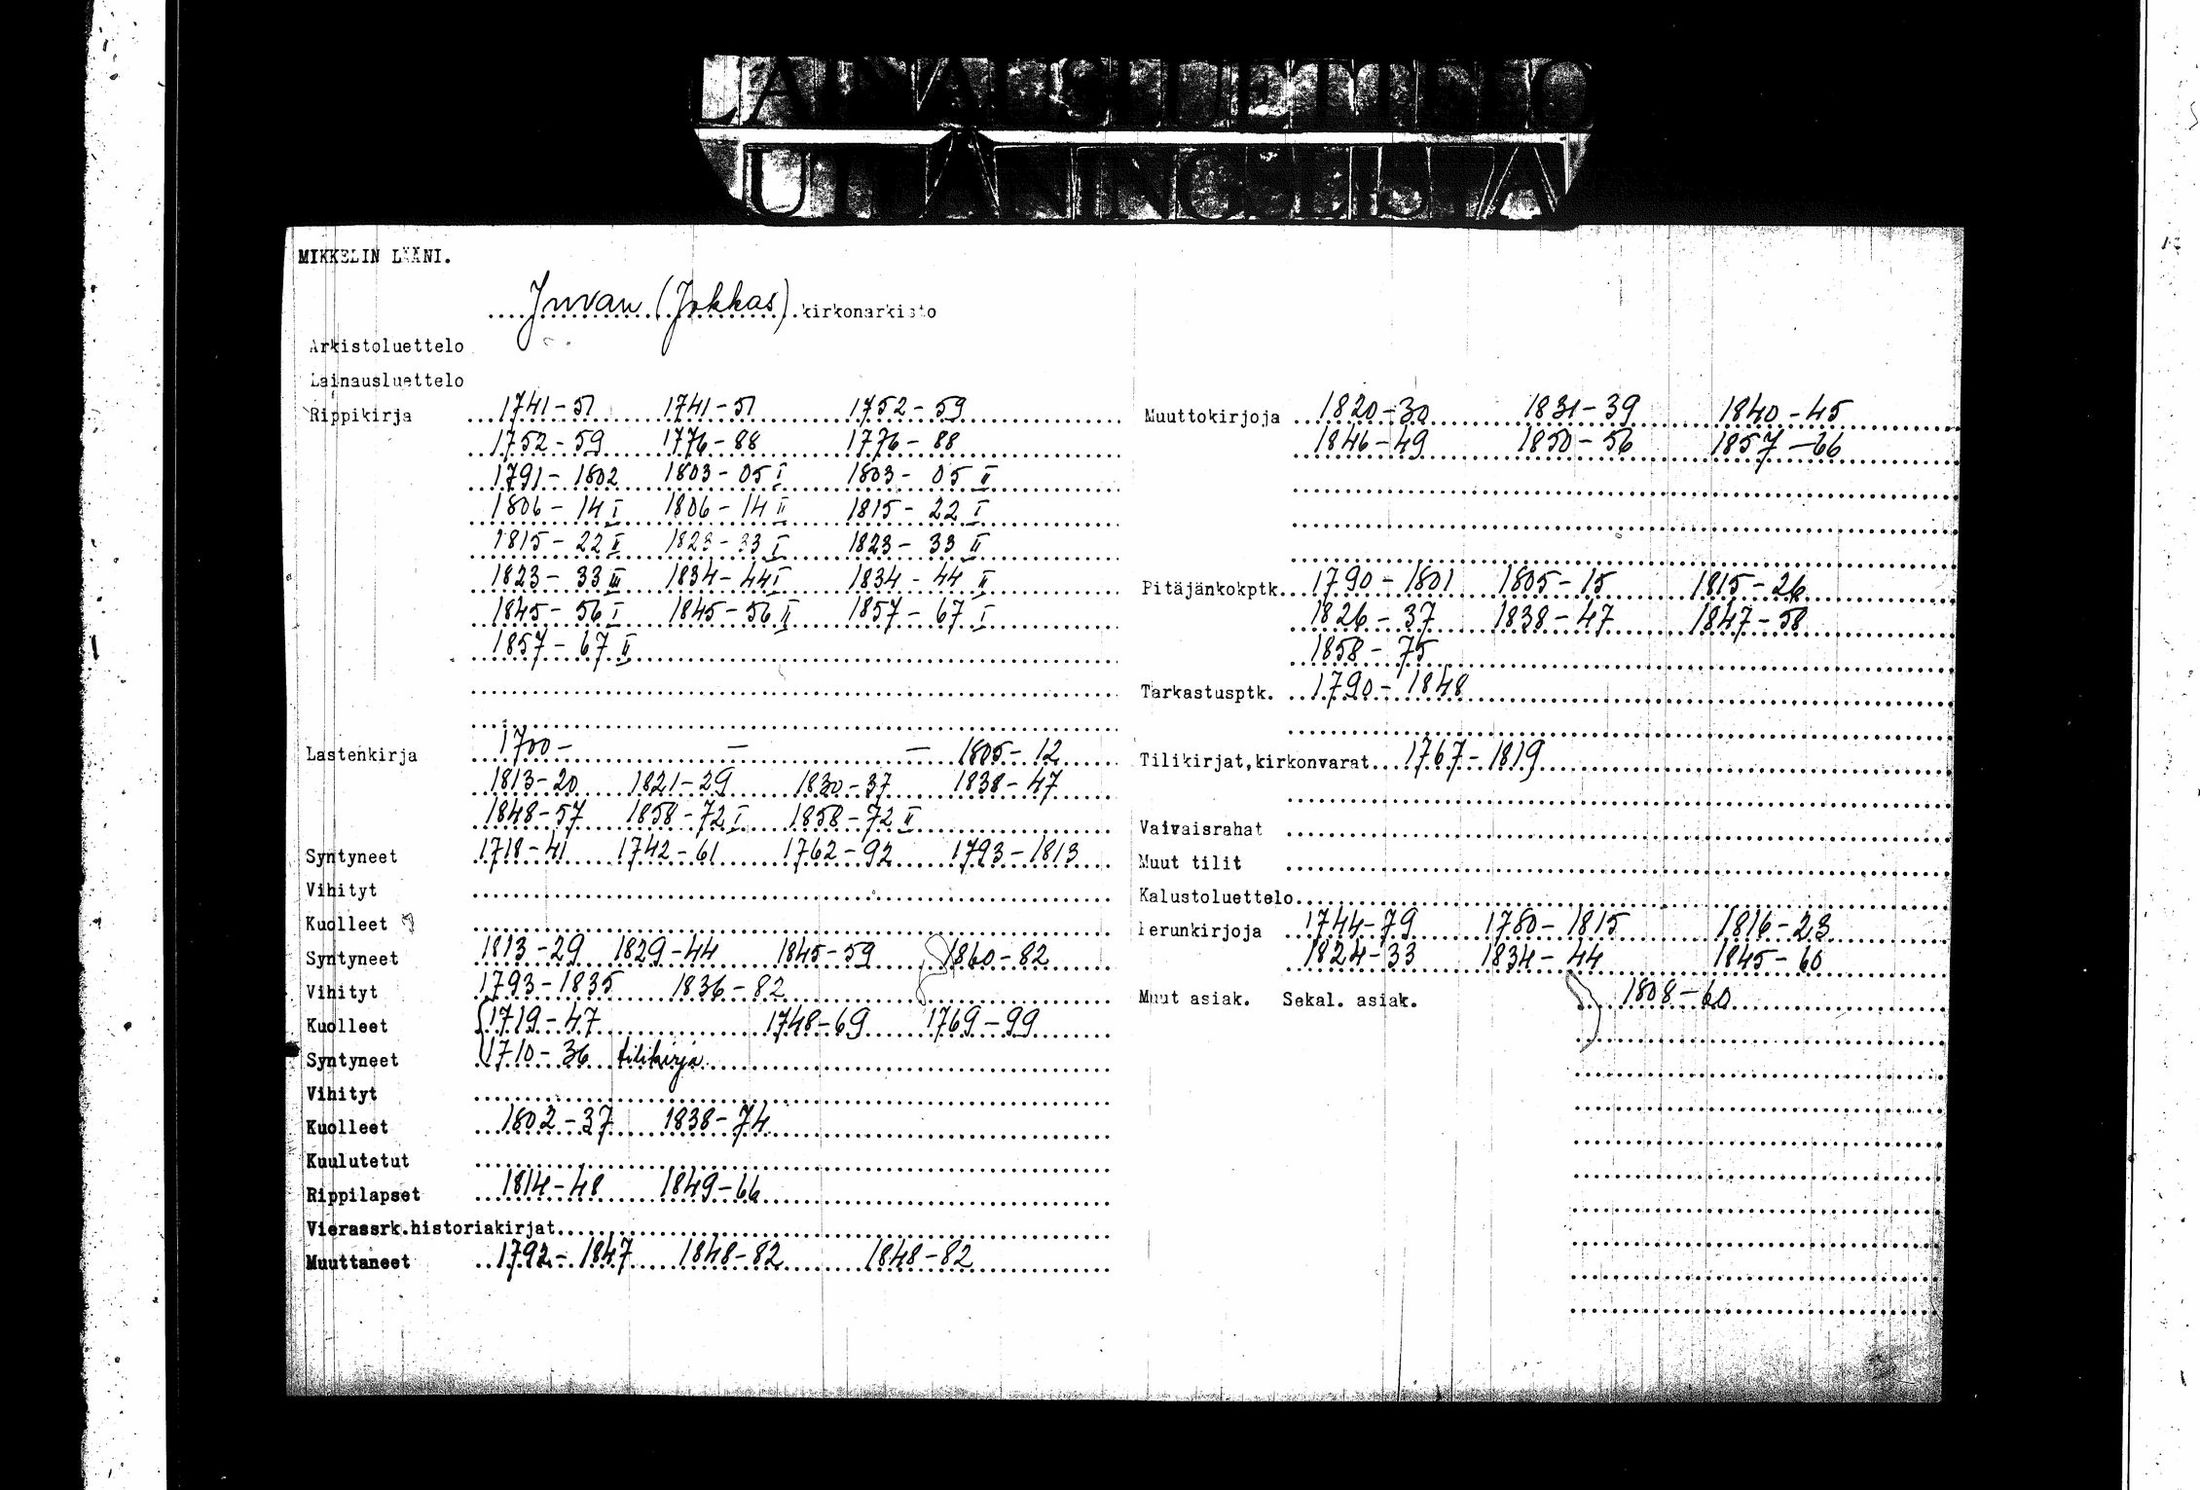 LAINAUSLUETTELO
UTLÅNINGSLISTA
MIKKELIN LÄÄNI.
Juvan (Jokkas) kirkonarkisto
Arkistoluettelo
Lainausluettelo
Rippikirja 1741-51 1741-51 1752-59
1752-59 1776-88 1776-88
1791-1802 1803-05 I 1803-05 II
1806-14 I 1806-14 II 1815-22 I
1815-22 II 1823-33 I 1823-33 II
1823-33 III 1834-44 I 1834-44 II
1845-56 I 1845-56 II 1857-67 I
1857-67 II
Lastenkirja 1700- - - 1805-12
1813-20 1821-29 1830-37 1838-47
1848-57 1858-72 I 1858-72 II
Syntyneet 1718-41 1742-61 1762-92 1793-1813
Vihityt
Kuolleet
Syntyneet 1813-29 1829-44 1845-59 1860-82
Vihityt 1793-1835 1836-82
Kuolleet 1719-47 1748-69 1769-99
Syntyneet 1710-36 tilikirja
Vihityt
Kuolleet 1802-37 1838-74
Kuulutetut
Rippilapset 1814-48 1849-66
Vierassrk.historiakirjat
Muuttaneet 1792-1847 1848-82 1848-82
Muuttokirjoja 1820-30 1831-39 1840-45
1846-49 1850-56 1857-66
Pitäjänkokptk. 1790-1801 1805-15 1815-26
1826-37 1838-47 1847-58
1858-75
Tarkastusptk. 1790-1848
Tilikirjat,kirkonvarat 1767-1819
Vaivaisrahat
Muut tilit
Kalustoluettelo
Perunkirjoja 1744-79 1780-1815 1816-23
1824-33 1834-44 1845-60
Muut asiak. Sekal. asiak. 1808-60